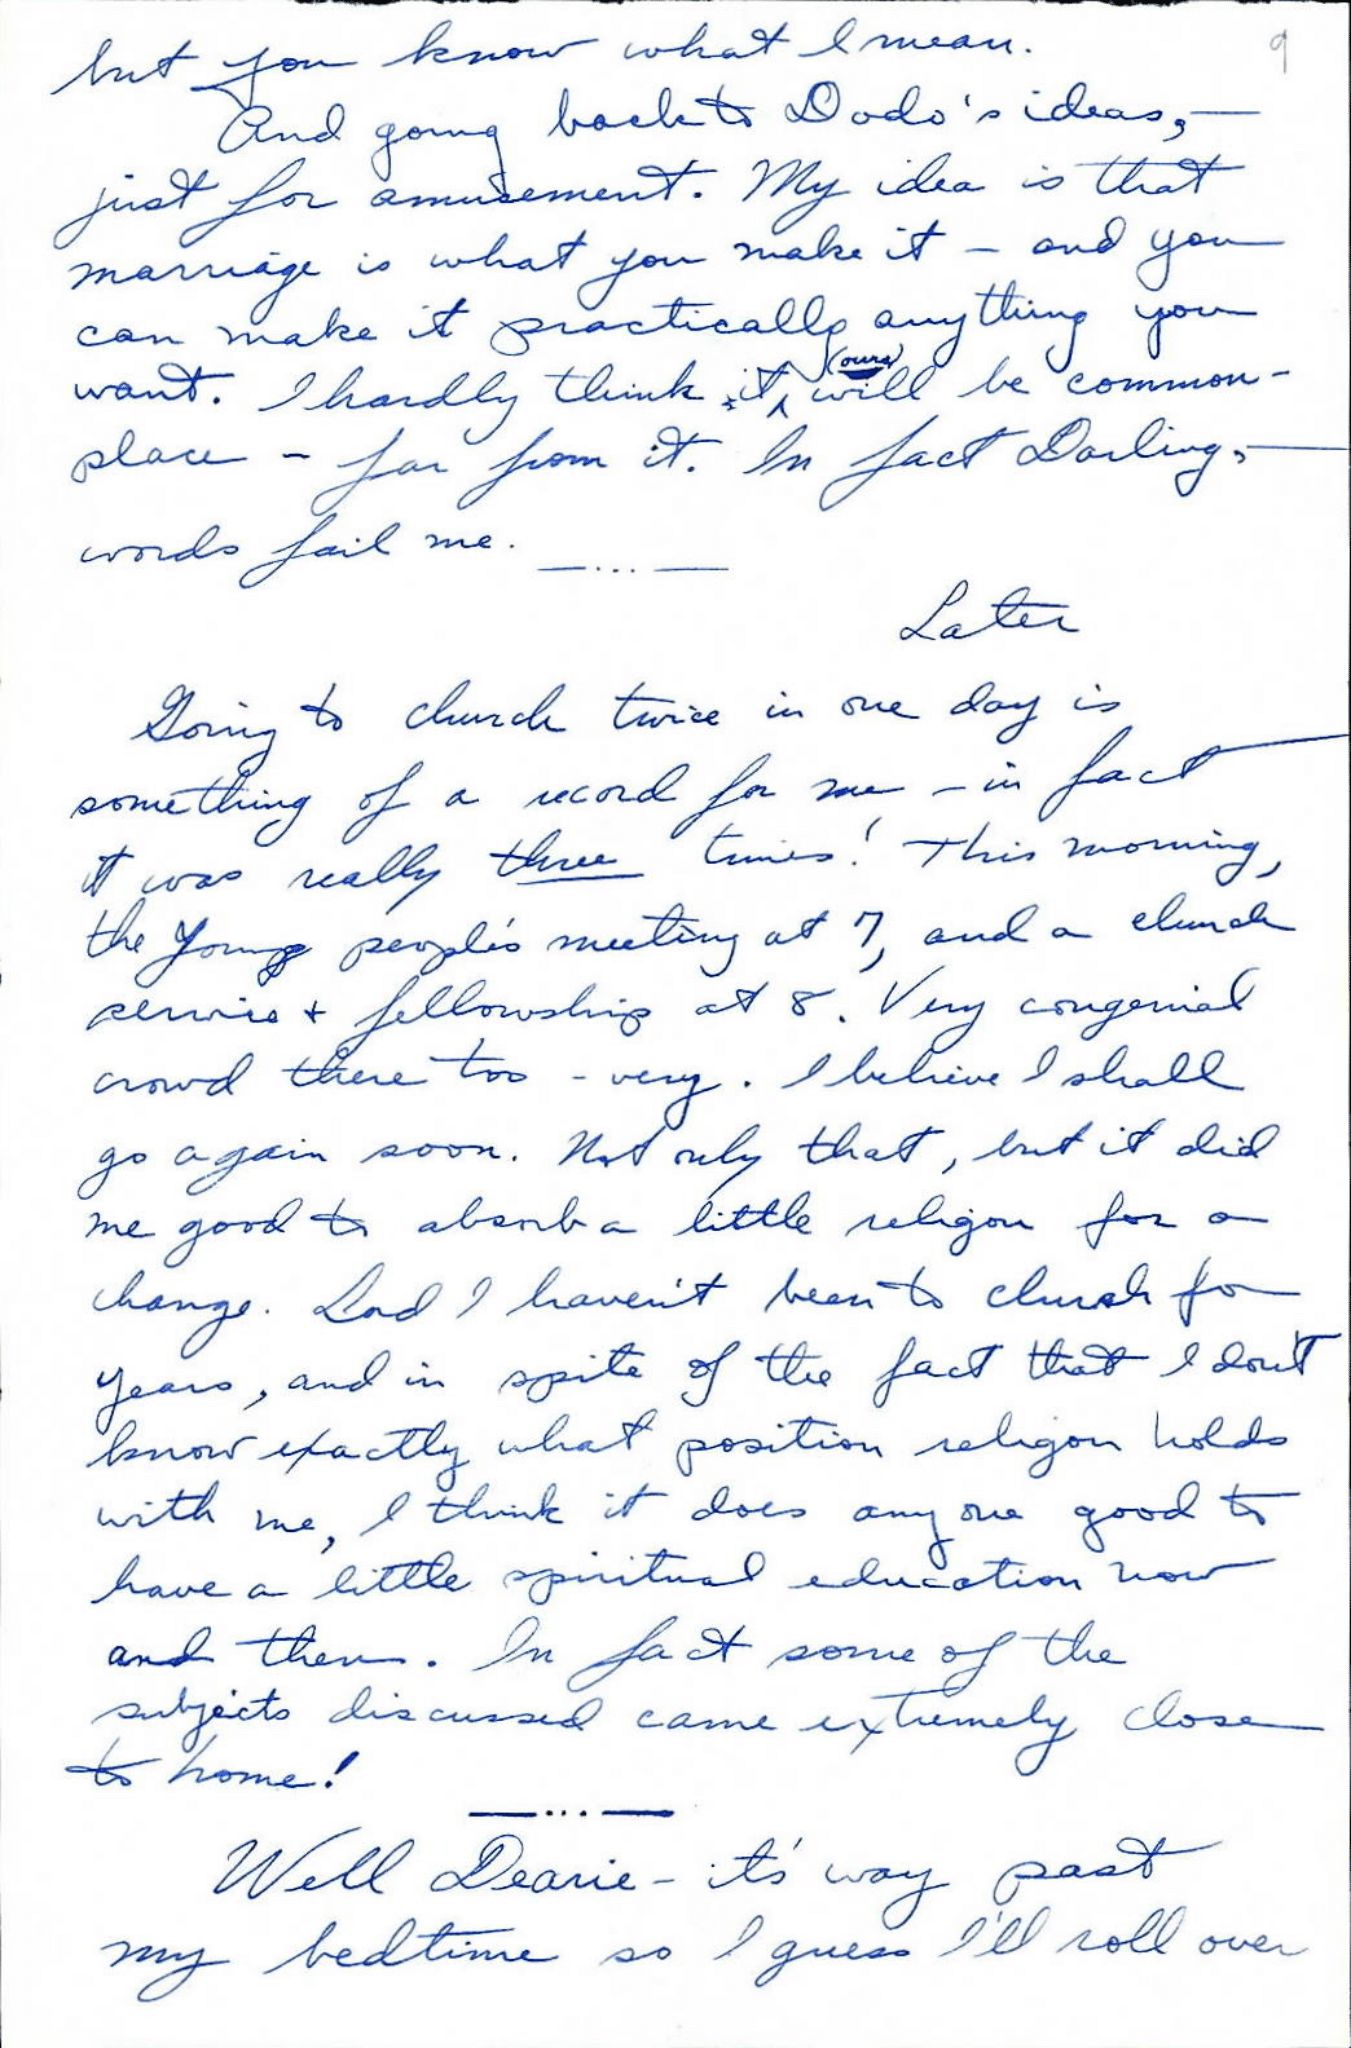 9
but you know what I mean.
And going back to Dodo's ideas, —
just for amusement. My idea is that
marriage is what you make it – and you
can make it practically anything you
(ours)
want. I hardly think it will be common-
place – far from it. In fact Darling, —
words fail me.
— ... —
Later
Going to church twice in one day is
something of a record for me – in fact
it was really three times! This morning,
the Young people's meeting at 7, and a church
service + fellowship at 8. Very congenial
crowd there too – very. I believe I shall
go again soon. Not only that, but it did
me good to absorb a little religon for a
change. Lord I haven't been to church for
years, and in spite of the fact that I don't
know exactly what position religon holds
with me, I think it does anyone good to
have a little spiritual education now
and then. In fact some of the
subjects discussed came extremely close
to home!
— ... —
Well Dearie – it's way past
my bedtime so I guess I'll roll over